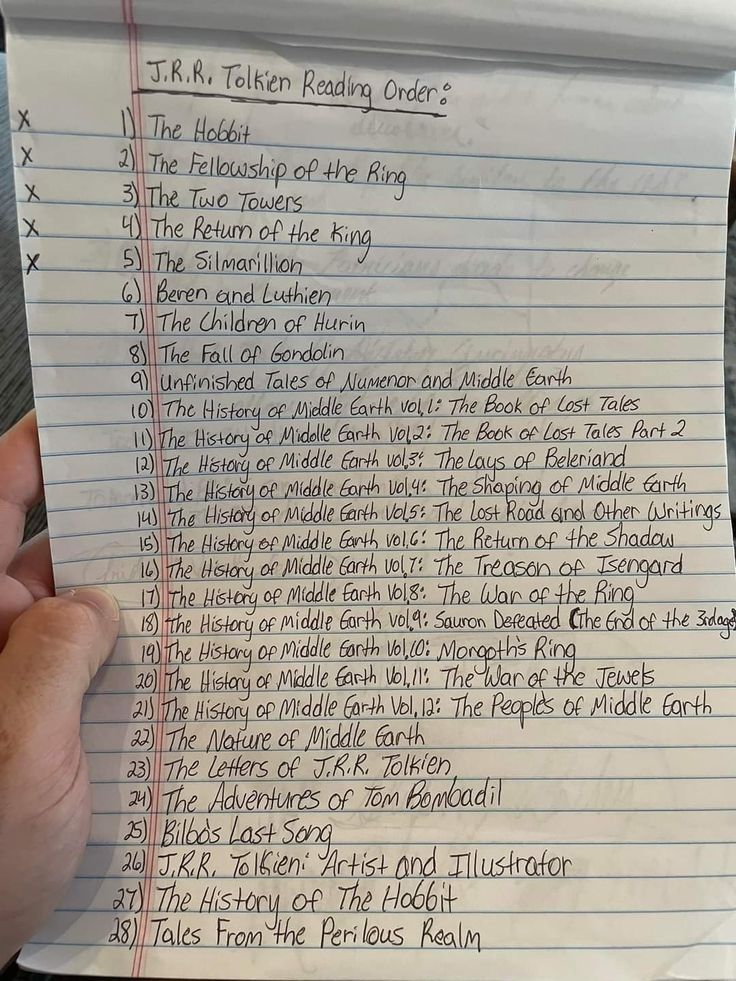 J.R.R. Tolkien Reading Order:
X 1) The Hobbit
X 2) The Fellowship of the Ring
X 3) The Two Towers
X 4) The Return of the King
X 5) The Silmarillion
6) Beren and Luthien
7) The Children of Hurin
8) The Fall of Gondolin
9) Unfinished Tales of Numenor and Middle Earth
10) The History of Middle Earth Vol,1: The Book of Lost Tales
11) The History of Middle Earth Vol,2: The Book of Lost Tales Part 2
12) The History of Middle Earth Vol,3: The Lays of Beleriand
13) The History of Middle Earth Vol,4: The Shaping of Middle Earth
14) The History of Middle Earth Vol,5: The Lost Road and Other Writings
15) The History of Middle Earth Vol,6: The Return of the Shadow
16) The History of Middle Earth Vol,7: The Treason of Isengard
17) The History of Middle Earth Vol,8: The War of the Ring
18) The History of Middle Earth Vol,9: Sauron Defeated (The End of the 3rd age)
19) The History of Middle Earth Vol,10: Morgoth's Ring
20) The History of Middle Earth Vol,11: The War of the Jewels
21) The History of Middle Earth Vol,12: The People's of Middle Earth
22) The Nature of Middle Earth
23) The Letters of J.R.R. Tolkien
24) The Adventures of Tom Bombadil
25) Bilbo's Last Song
26) J.R.R. Tolkien: Artist and Illustrator
27) The History of The Hobbit
28) Tales From the Perilous Realm